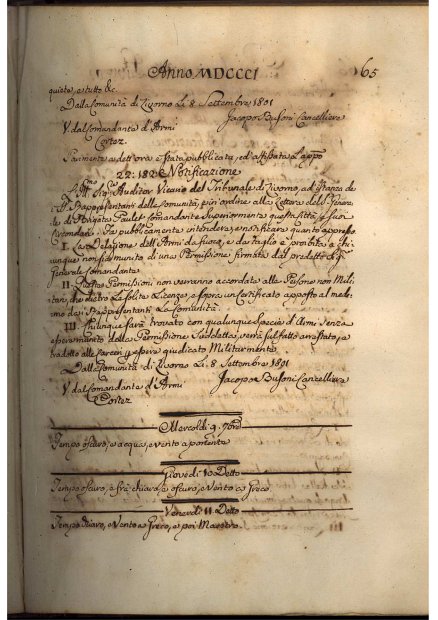 Anno MDCCCI
65
quieto, e tutto &c.
Dalla Comunità di Livorno Li 8 Settembre 1801
V. dal Comandante d'Armi Jacopo Busoni Cancelliere
Cortez
Parimente a dett'ora è stata pubblicata, ed affissata L'appo
Notificazione
L'Ill.mo Sig.re Auditor Vicario del Tribunale di Livorno, ad istanza de
Rappresentanti della Comunità, ed in ordine alla Lettera del Generale
Comandante Superiormente questa Città, e suoi
Fà pubblicamente intendere, e notificare quanto appresso
I. La Delazione dell'Armi da fuoco, e da taglio è proibita a chi
unque non sia munito di una Permissione firmata dal predetto Sig.
Generale Comandante
II. Queste Permissioni non verranno accordate alle Persone non Mili
tari, che dietro La solita Licenza, e sopra un Certificato apposto al mede
mo dai Rappresentanti La Comunità.
III. Chiunque sarà trovato con qualunque Specie d'Armi senza
esperimento della Permissione Suddetta, verrà sul fatto arrestato, e
tradotto alle Carceri, e quivi giudicato Militarmente
Dalla Comunità di Livorno Li 8 Settembre 1801
V. dal Comandante d'Armi Jacopo Busoni Cancelliere
Cortez
Mercoldì 9. 7bre
Tempo oscuro, e acqua, e vento a ponente
Giovedì 10 Detto
Tempo oscuro, e frà chiaro, e oscuro, e Vento a Greco
Venerdì 11 Detto
Tempo chiaro, e Vento a Greco, e poi Maestro